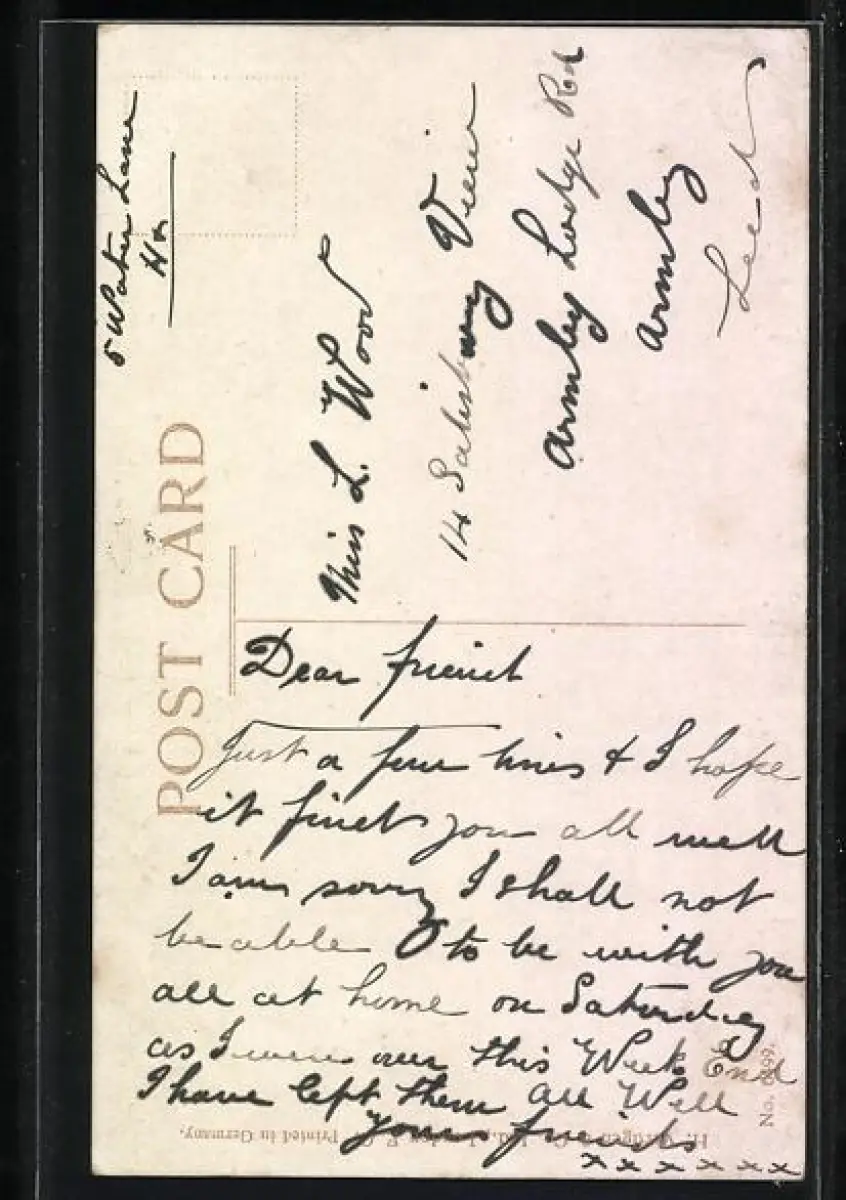 POST CARD
5 Water Lane
Hx
Miss L. Wood
14 Salisbury View
Armley Lodge Rd
Armley
Leeds
Dear friend
Just a few lines & I hope
it finds you all well
I am sorry I shall not
be able to be with you
all at home on Saturday
as I were over this Week End
I have left them all Well
yours friends
x x x x x x x
Printed in Germany.